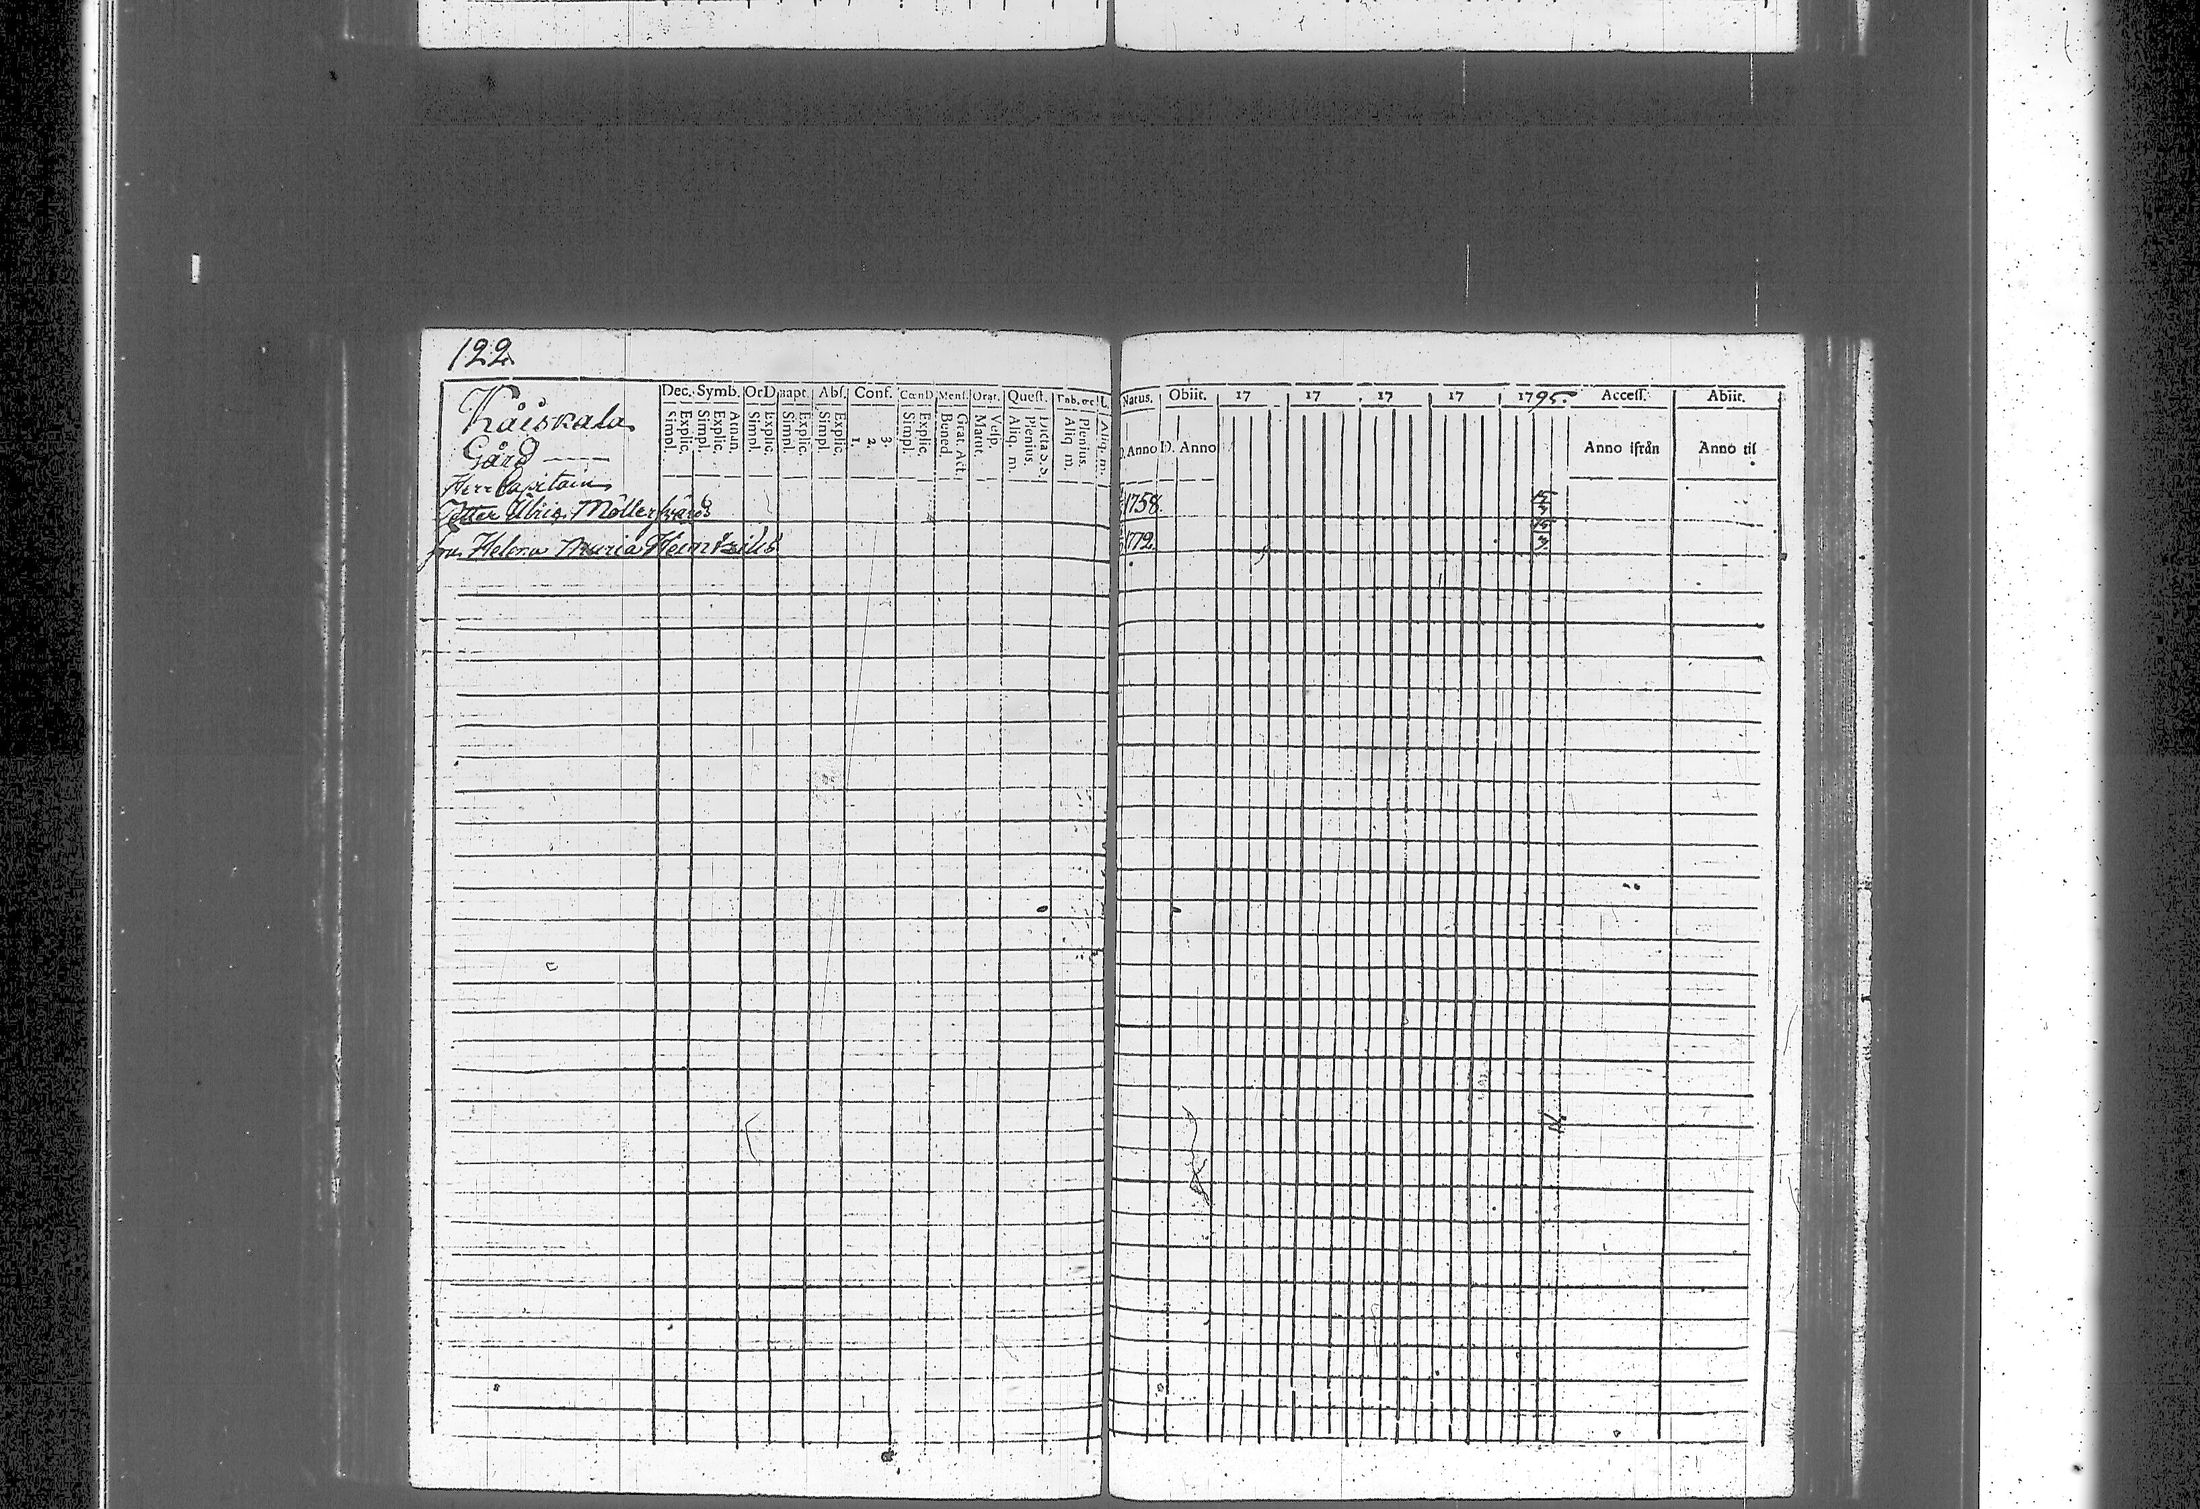 122.
Dec. Symb. Or D Bapt. Abs. Conf. Cœn D Mens. Orat. Quest. Tab. œc Natus. Obiit. 17 17 17 17 1795. Access. Abiit.
Simpl. Explic. Simpl. Explic. Simpl. Explic. Simpl. Explic. Simpl. Explic. 1. 2. 3. Simpl. Explic. Bened. Grat. Act. Matut. Vesp. Aliq. m. Plenius. Dicta S. S. Aliq. m. Plenius. Aliq. m.
D. Anno D. Anno Anno ifrån Anno til
Kåiskala
Gård
Herr Capitain
Petter Ulric Möllersvärd 1758. 15 3
fru Helena Maria Heintzius 1772 15 3